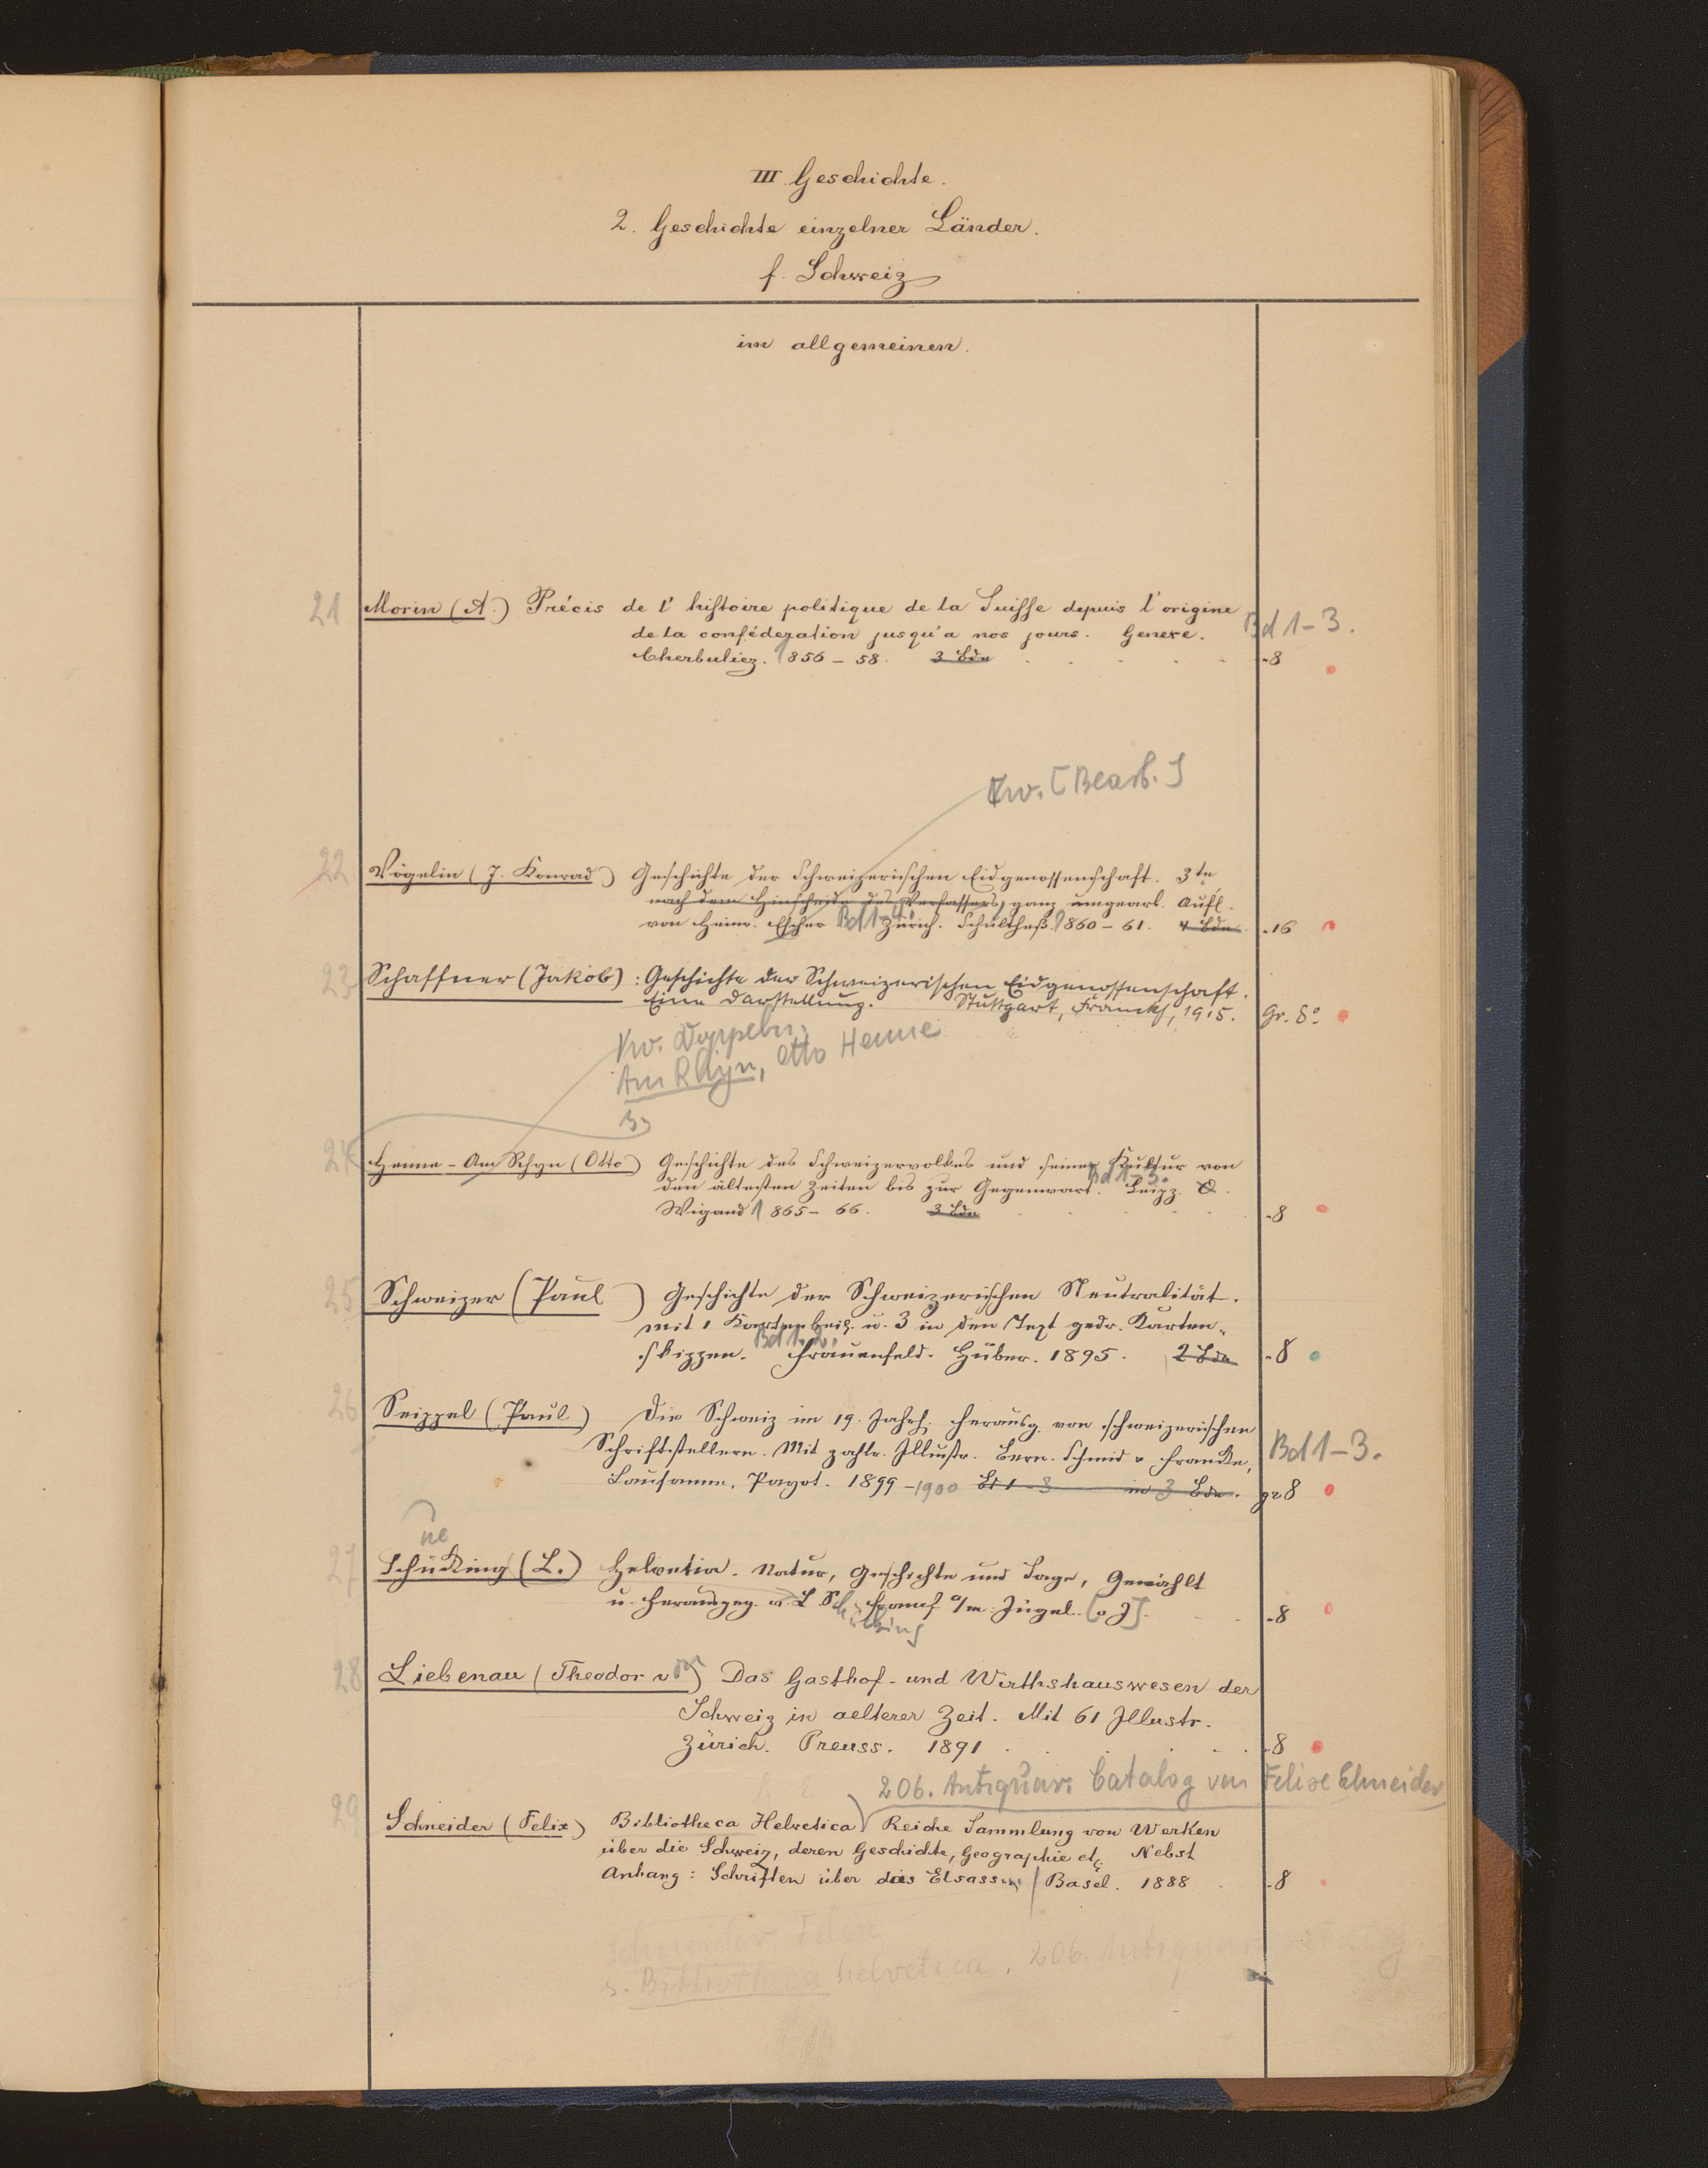 III Geschichte.
2. Geschichte einzelner Länder.
f. Schweiz
im allgemeinen.
21 Morin (A.) Précis de l'histoire politique de la Suisse depuis l'origine
de la conféderation jusqu'a nos jours. Geneve. Bd 1-3.
Cherbuliez. 1856-58. 3 Bde -8
Vw. [Bearb.]
22 Vögelin (J. Konrad) Geschichte der Schweizerischen Eidgenossenschaft. 3te
nach dem Hinscheide des Verfassers, ganz umgearb. Aufl.
von Heinr. Escher Bd 1-4. Zürich. Schultheß. 1860-61. 4 Bde -16
23 Schaffner (Jakob): Geschichte der Schweizerischen Eidgenossenschaft.
Eine Darstellung. Stuttgart, Franckh, 1915. Gr. 8°
Vw. Doppeln.
Am Rhyn, Otto Henne
s.
24 Henne-Am Rhyn (Otto) Geschichte des Schweizervolkes und seiner Kultur von
den ältesten Zeiten bis zur Gegenwart. Bd 1-3. Leipz. O.
Wigand 1865-66. 3 Bde -8
25 Schweizer (Paul) Geschichte der Schweizerischen Neutralität.
mit 1 Kartenbeil. u. 3 in den Text gedr. Karten-
skizzen. Bd 1.2. Frauenfeld. Huber. 1895. 2 Bde -8
26 Seippel (Paul) Die Schweiz im 19. Jahrh. herausg. von schweizerischen
Schriftstellern. Mit zahlr. Illustr. Bern. Schmid & Francke, Bd 1-3.
Lausanne, Payot. 1899-1900 Bd 1-3 in 3 Bdn. gr 8
27 Schücking (L.) Helvetia. Natur, Geschichte und Sage, Gewählt
u. herausgeg. v. L Schücking Francf a/m. Jügel. [o J]. -8
28 Liebenau (Theodor von) Das Gasthof- und Wirthshauswesen der
Schweiz in aelterer Zeit. Mit 61 Illustr.
Zürich. Preuss. 1891 -8
206. Antiquar. Catalog von Felix Schneider
29 Schneider (Felix) Bibliotheca Helvetica Reiche Sammlung von Werken
über die Schweiz, deren Geschichte, Geographie etc. Nebst
Anhang: Schriften über das Elsass Basel. 1888 -8
Schneider, Felix
s. Bibliotheca helvetica, 206. Antiquar.